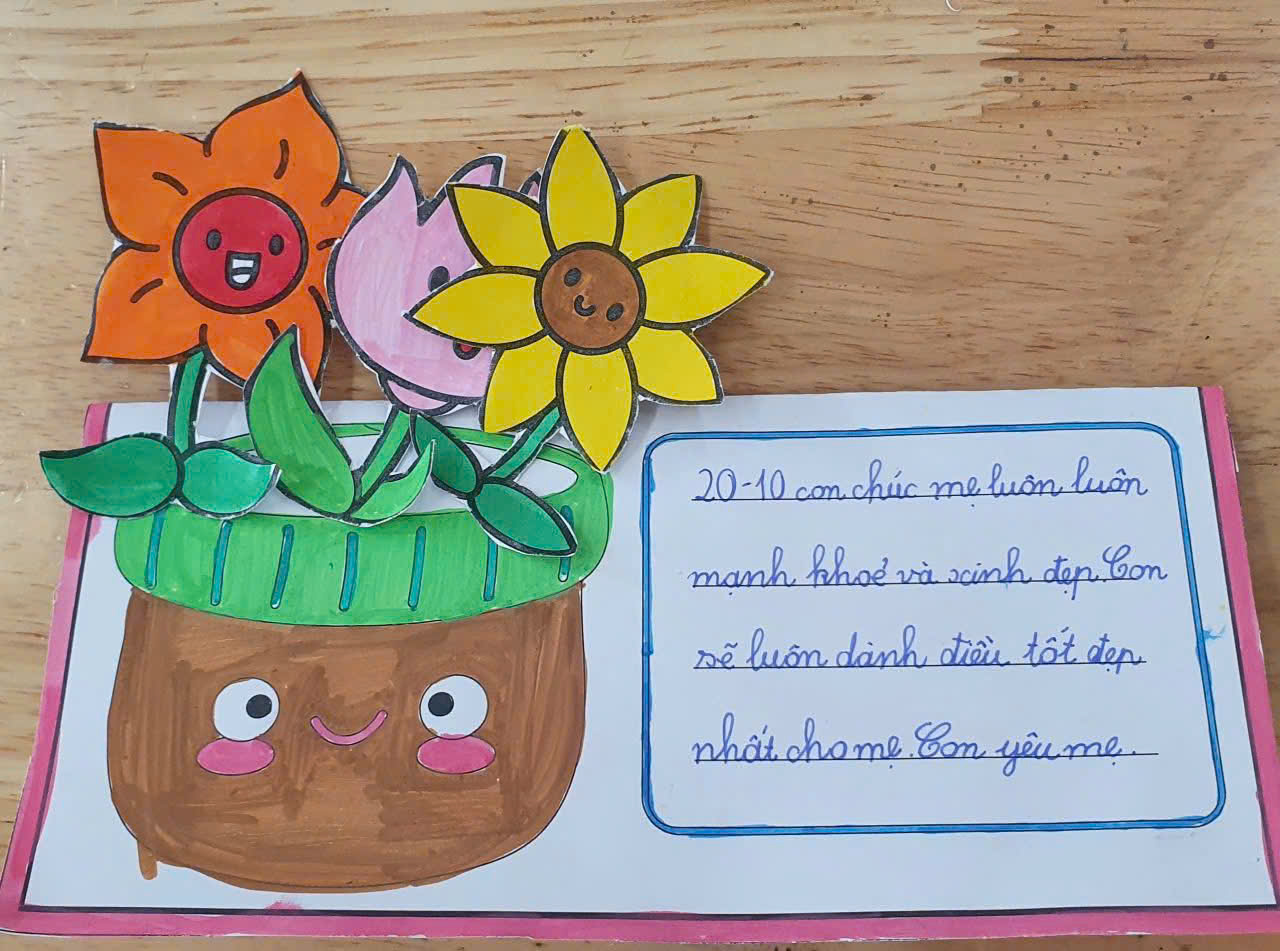 20-10 con chúc mẹ luôn luôn
mạnh khoẻ và xinh đẹp. Con
sẽ luôn dành điều tốt đẹp
nhất cho mẹ. Con yêu mẹ.